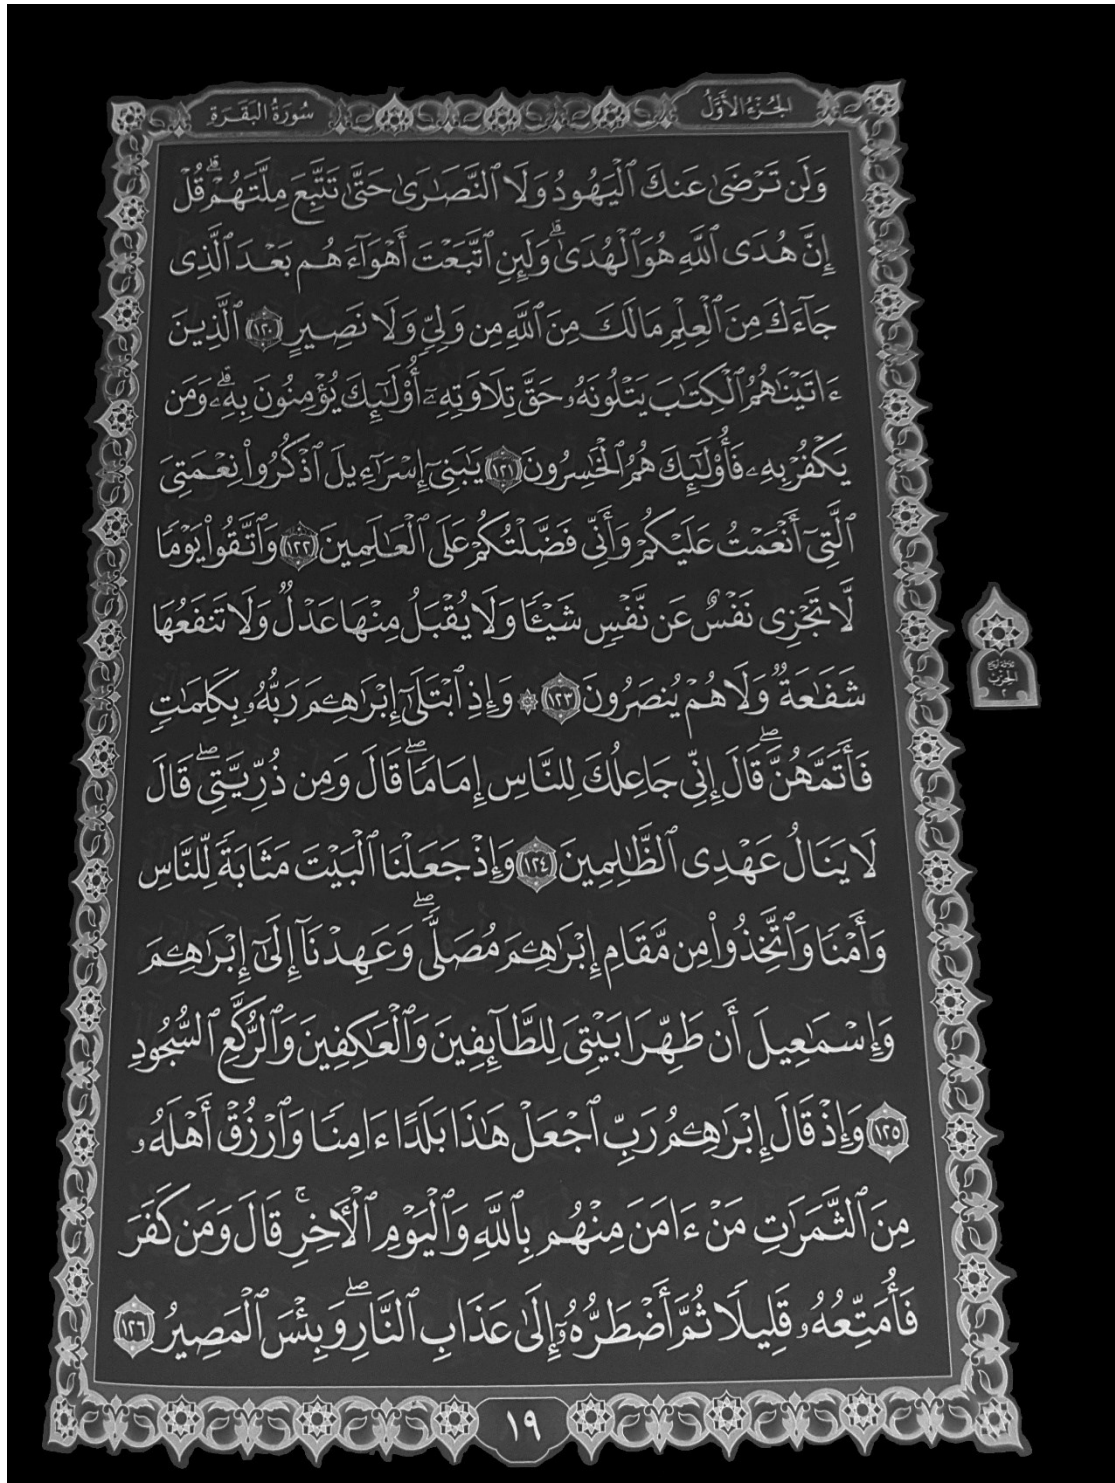 الجُزْءُ الأَوَّلُ
سُورَةُ البَقَرَةِ
وَلَن تَرْضَىٰ عَنكَ ٱلْيَهُودُ وَلَا ٱلنَّصَٰرَىٰ حَتَّىٰ تَتَّبِعَ مِلَّتَهُمْۗ قُلْ
إِنَّ هُدَى ٱللَّهِ هُوَ ٱلْهُدَىٰۗ وَلَئِنِ ٱتَّبَعْتَ أَهْوَآءَهُم بَعْدَ ٱلَّذِى
جَآءَكَ مِنَ ٱلْعِلْمِ مَا لَكَ مِنَ ٱللَّهِ مِن وَلِىٍّ وَلَا نَصِيرٍ ١٢٠ ٱلَّذِينَ
ءَاتَيْنَٰهُمُ ٱلْكِتَٰبَ يَتْلُونَهُۥ حَقَّ تِلَاوَتِهِۦٓ أُو۟لَٰٓئِكَ يُؤْمِنُونَ بِهِۦۗ وَمَن
يَكْفُرْ بِهِۦ فَأُو۟لَٰٓئِكَ هُمُ ٱلْخَٰسِرُونَ ١٢١ يَٰبَنِىٓ إِسْرَٰٓءِيلَ ٱذْكُرُوا۟ نِعْمَتِىَ
ٱلَّتِىٓ أَنْعَمْتُ عَلَيْكُمْ وَأَنِّى فَضَّلْتُكُمْ عَلَى ٱلْعَٰلَمِينَ ١٢٢ وَٱتَّقُوا۟ يَوْمًا
لَّا تَجْزِى نَفْسٌ عَن نَّفْسٍ شَيْـًٔا وَلَا يُقْبَلُ مِنْهَا عَدْلٌ وَلَا تَنفَعُهَا
شَفَٰعَةٌ وَلَا هُمْ يُنصَرُونَ ١٢٣ ۞ وَإِذِ ٱبْتَلَىٰٓ إِبْرَٰهِـۧمَ رَبُّهُۥ بِكَلِمَٰتٍ
فَأَتَمَّهُنَّۖ قَالَ إِنِّى جَاعِلُكَ لِلنَّاسِ إِمَامًاۖ قَالَ وَمِن ذُرِّيَّتِىۖ قَالَ
لَا يَنَالُ عَهْدِى ٱلظَّٰلِمِينَ ١٢٤ وَإِذْ جَعَلْنَا ٱلْبَيْتَ مَثَابَةً لِّلنَّاسِ
وَأَمْنًا وَٱتَّخِذُوا۟ مِن مَّقَامِ إِبْرَٰهِـۧمَ مُصَلًّىۖ وَعَهِدْنَآ إِلَىٰٓ إِبْرَٰهِـۧمَ
وَإِسْمَٰعِيلَ أَن طَهِّرَا بَيْتِىَ لِلطَّآئِفِينَ وَٱلْعَٰكِفِينَ وَٱلرُّكَّعِ ٱلسُّجُودِ
١٢٥ وَإِذْ قَالَ إِبْرَٰهِـۧمُ رَبِّ ٱجْعَلْ هَٰذَا بَلَدًا ءَامِنًا وَٱرْزُقْ أَهْلَهُۥ
مِنَ ٱلثَّمَرَٰتِ مَنْ ءَامَنَ مِنْهُم بِٱللَّهِ وَٱلْيَوْمِ ٱلْـَٔاخِرِۚ قَالَ وَمَن كَفَرَ
فَأُمَتِّعُهُۥ قَلِيلًا ثُمَّ أَضْطَرُّهُۥٓ إِلَىٰ عَذَابِ ٱلنَّارِۖ وَبِئْسَ ٱلْمَصِيرُ ١٢٦
ثلاثة أرباع
الحزب
٢
١٩